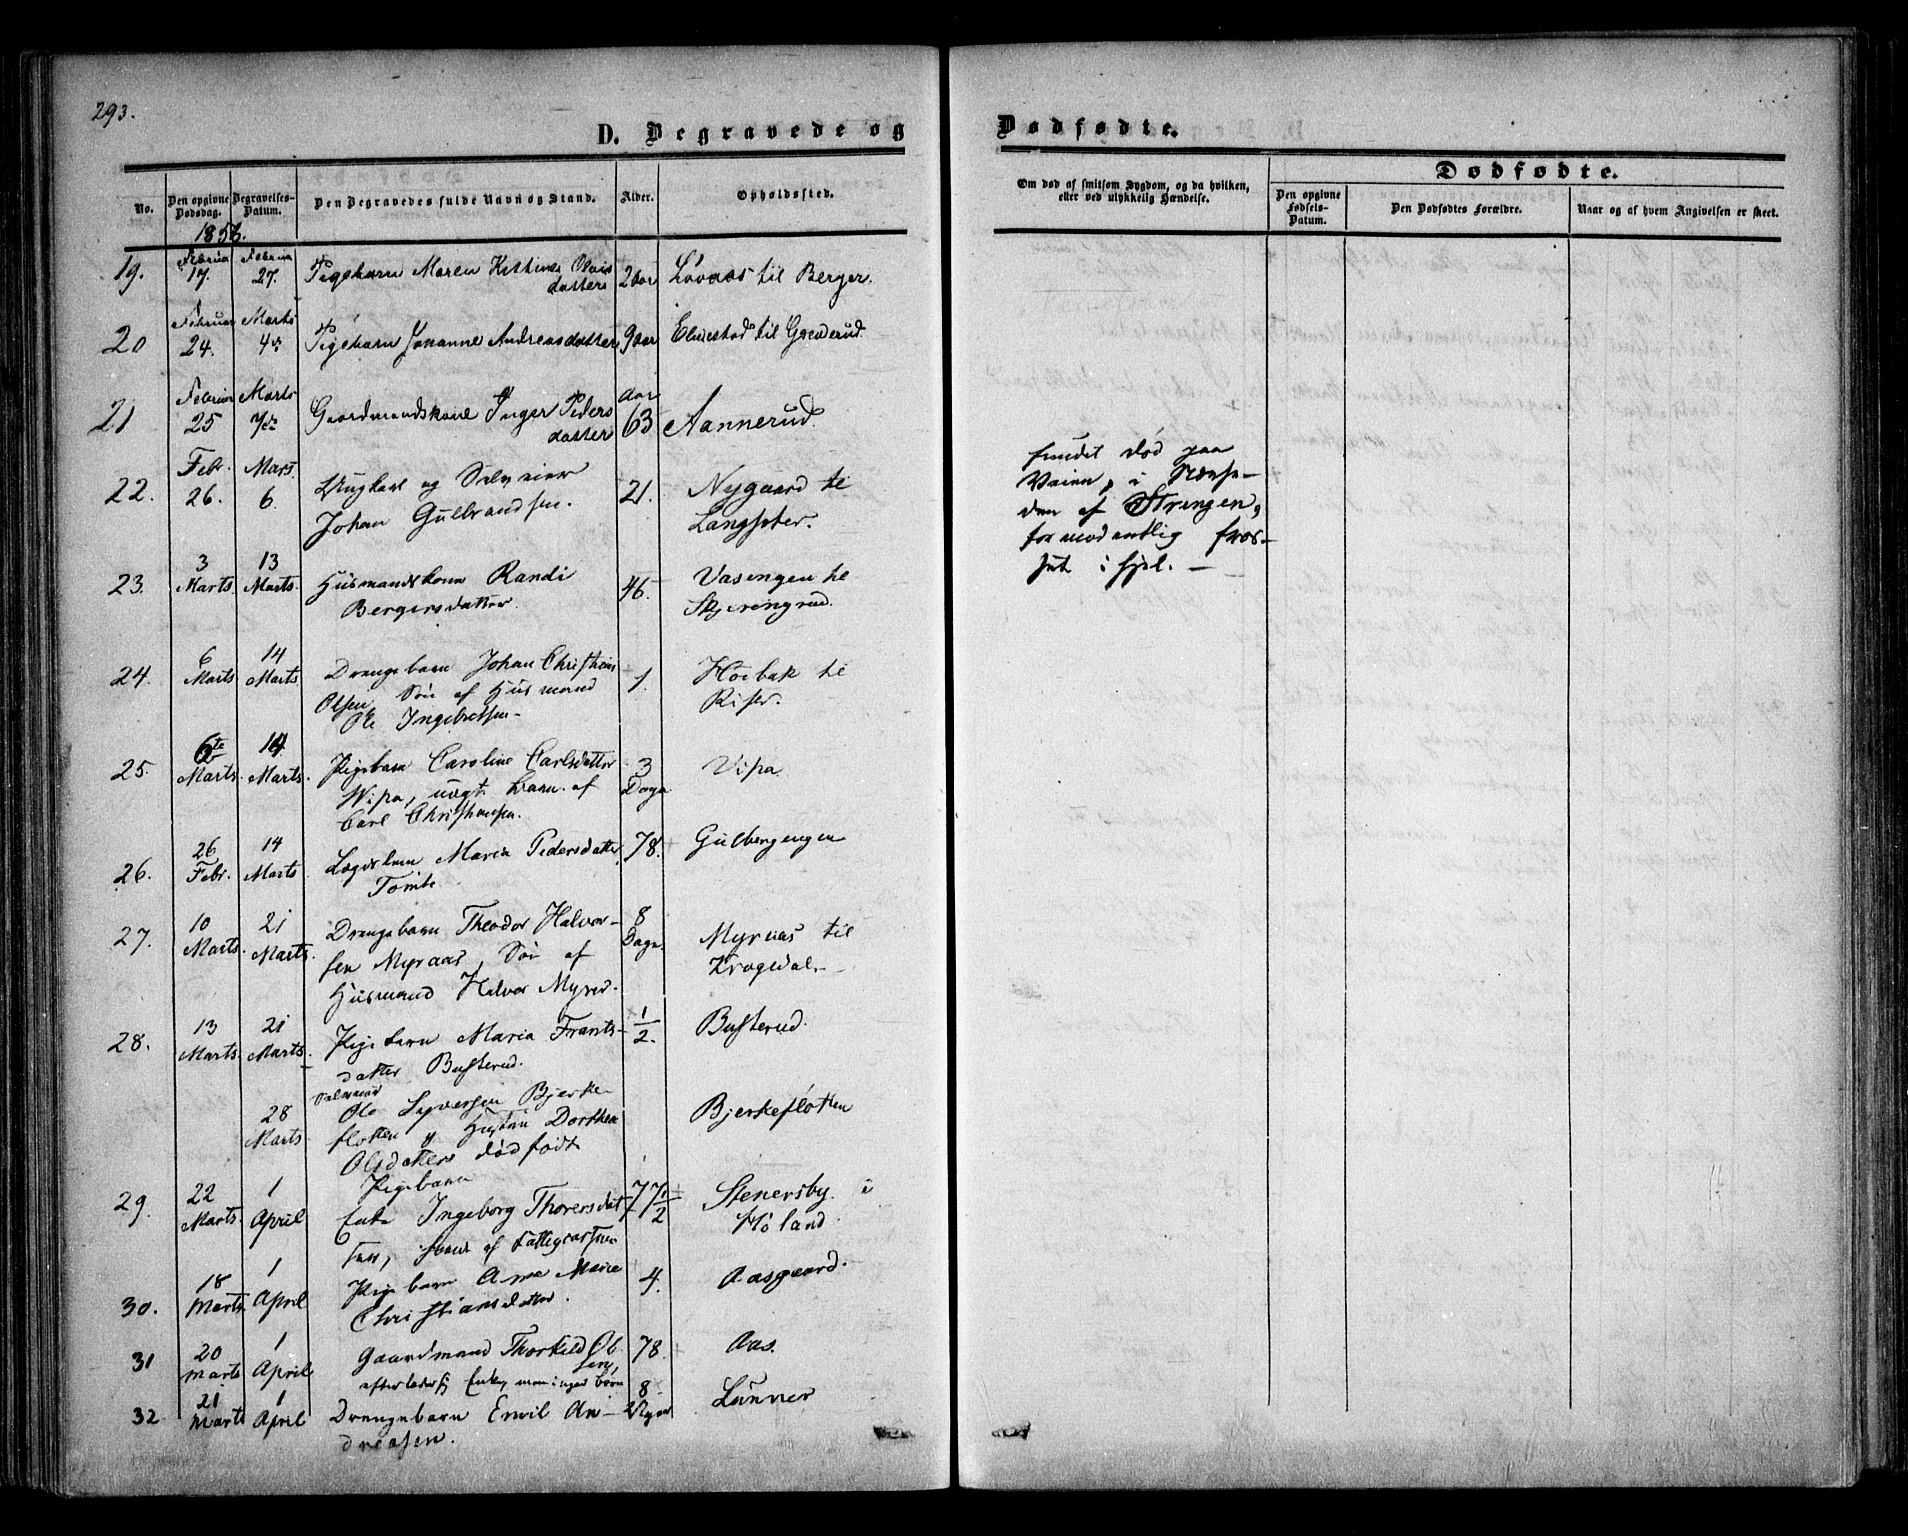 293.
D. Begravede og Dødfødte.
No.
Den opgivne Dødsdag.
Begravelses-Datum.
Den Begravedes fulde Navn og Stand.
Alder.
Opholdssted.
Om død af smitsom Sygdom, og da hvilken,
eller ved ulykkelig Hændelse.
Dødfødte.
Den opgivne Fødsels-Datum.
Den Dødfødtes Forældre.
Naar og af hvem Angivelsen er skeet.
1856.
19. Februar 17. Februar 27. Pigebarn Maren Olais
datter 2 aar Løvaas til Berger.
20 Februar 24. Marts 4de Pigebarn Johanne Andreasdatter 9 aar til
21 Februar 25 Marts 7de Gaardmandskone Inger Peders
datter 63 Aar Aannerud.
22. Febr. 26. Mars 6. Ungkarl og
Johan Gulbrandsen. 21. Nygaard te
Langseter.
fundet død paa
Veien, i Nærhe-
den af Strengen,
formodentlig fros-
set i hjel. —
23. 3 Marts. 13 Marts. Husmandskone Randi
Bergersdatter. 46. Vasengen te
Skjerengrud.
24. 6 Marts 14 Marts. Drengebarn Johan Christian
Olsen, Søn af Husmand
Ole Ingebretsen- 1. Høibak te
Riser.
25. 6te Marts. 14 Marts. Pigebarn Caroline Carlsdatter
Vipa, uægt. Barn af
Carl Christiansen. 3 Dage Vipa
26. 26 Febr. 14 Marts Lægdslem Maria Pedersdatter
Tomte 78. Gulbergengen
27. 10 Marts. 21 Marts. Drengebarn Theodor Halvor-
sen Myraas, Søn af
Husmand Halvor 8 Dage Myraas til
Krogedal. —
28. 13 Marts. 21 Marts. Pigebarn Maria Frants-
datter Busterud. 1/2. Busterud.
28 Marts
Ole Syversen Bjerke-
flotten og Hustru Dorthea
Olsdatters dødfødt
Pigebarn
Bjerkefløtten
29. 22 Marts. 1 April Enke Ingeborg Thorersdat
ter, af Fattigcassen 77 1/2 Stenersby i
Høland.
30. 18 Marts 1 April Pigebarn Ane Marie
Christiansdatter. 4. Aasgaard.
31 20 Marts 1 April Gaardmand Thorkild Ol
sen,
efterlader sig Enke, men ingen børn 78. Aas.
32 21 Marts 1 April Drengebarn Emil An-
dreasen. 8 Lunner